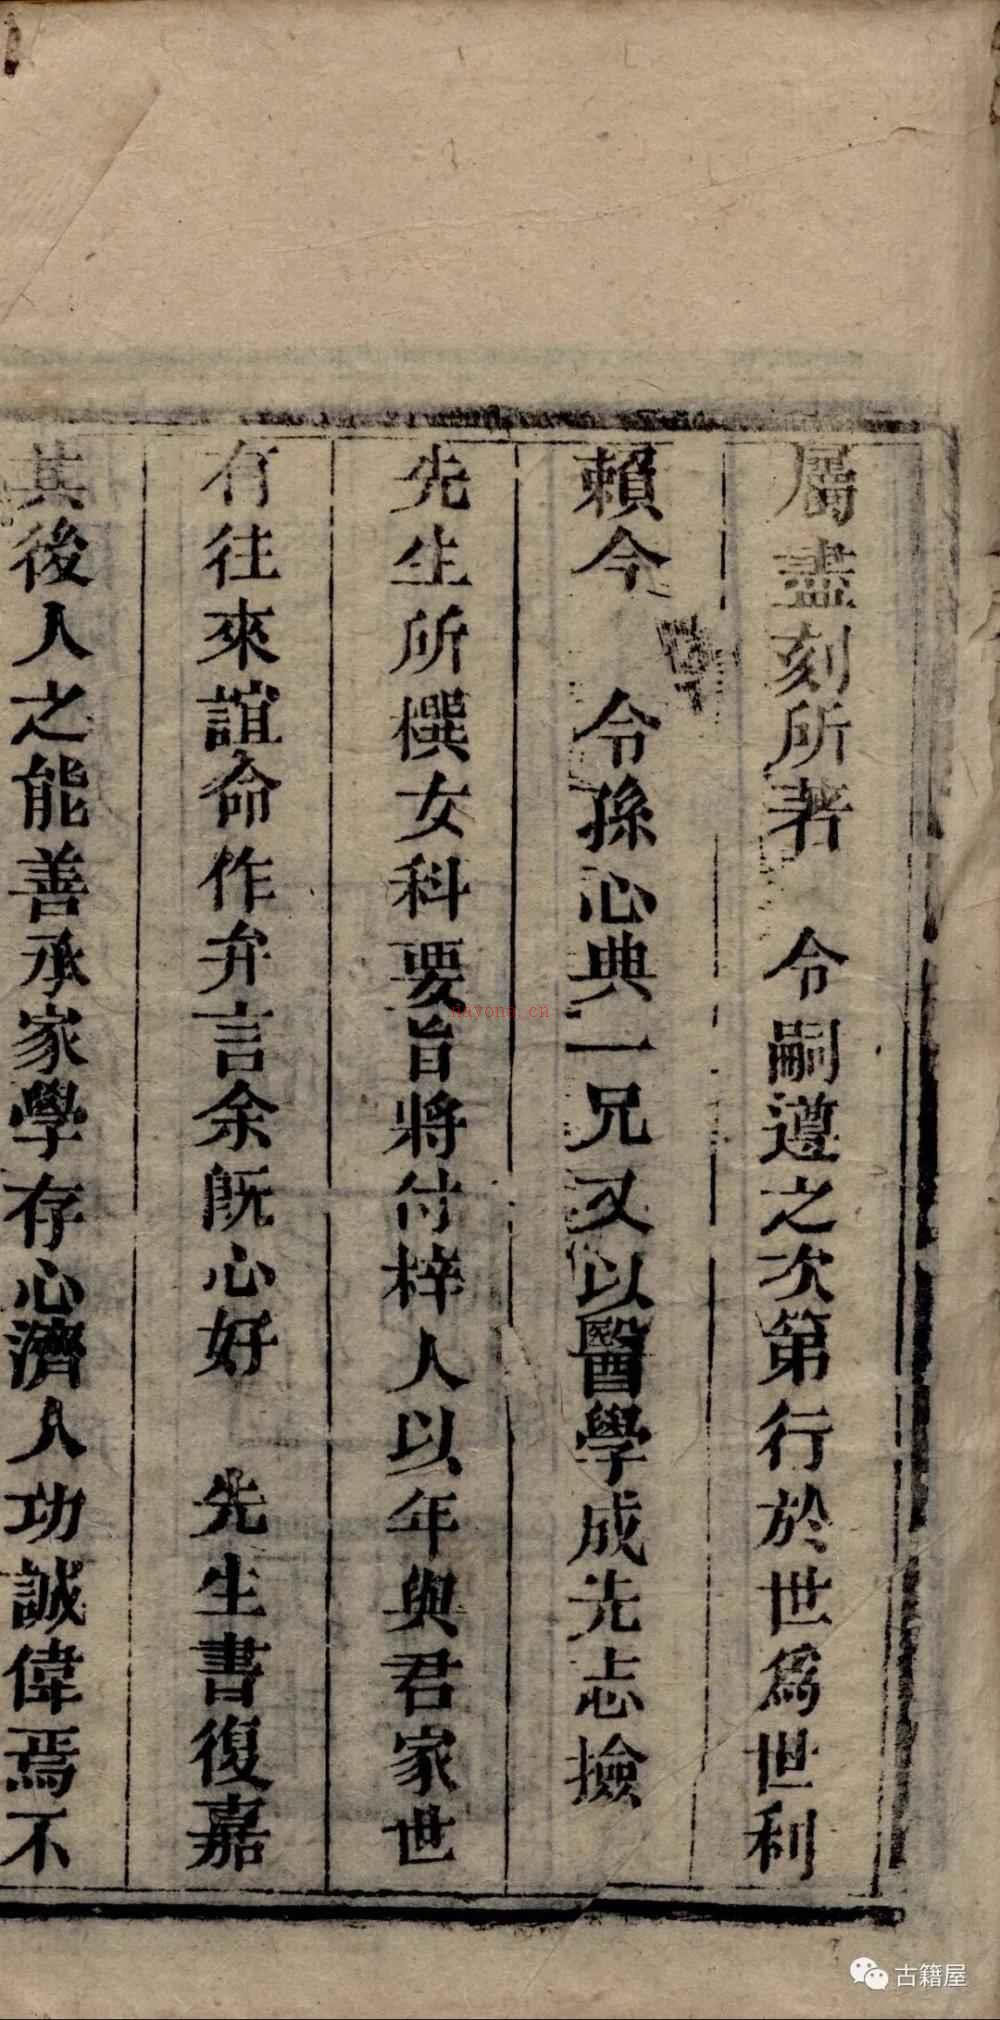 屬盡刻所著　令嗣遵之次第行於世爲世利
賴今　令孫心典一兄又以醫學成先志撿
先生所撰女科要旨將付梓人以年與君家世
有往來誼命作弁言余既心好　先生書復嘉
其後人之能善承家學存心濟人功誠偉焉不
nayona.cn
古籍屋